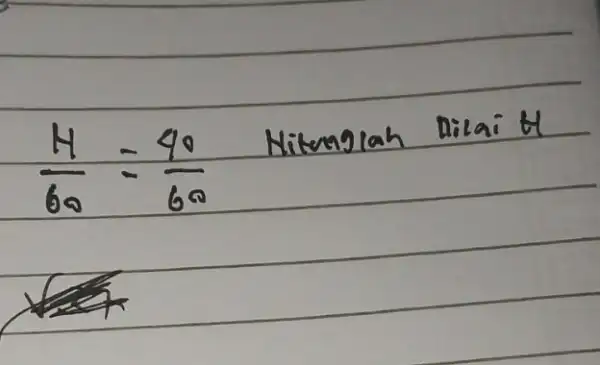 H/60 = 90/60 Hitunglah Nilai H